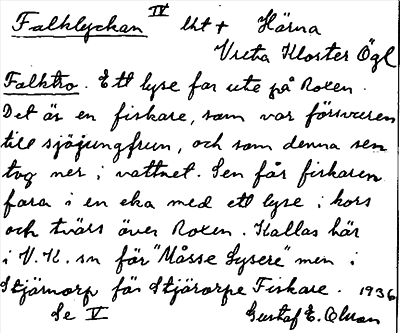 Falklyckan IV lht + Härna
Vreta Kloster Ögl
Falktro. Ett lyse far ute på Roxen.
Det är en fiskare, som var försvuren
till sjöjungfrun, och som denna sen
tog ner i vattnet. Sen får fiskaren
fara i en eka med ett lyse i kors
och tvärs över Roxen. Kallas här
i V.K. sn för "Måsse Lysere" men i
Stjärnorp för Stjärorpe Fiskare. 1936
Se V Gustaf E. Olsson